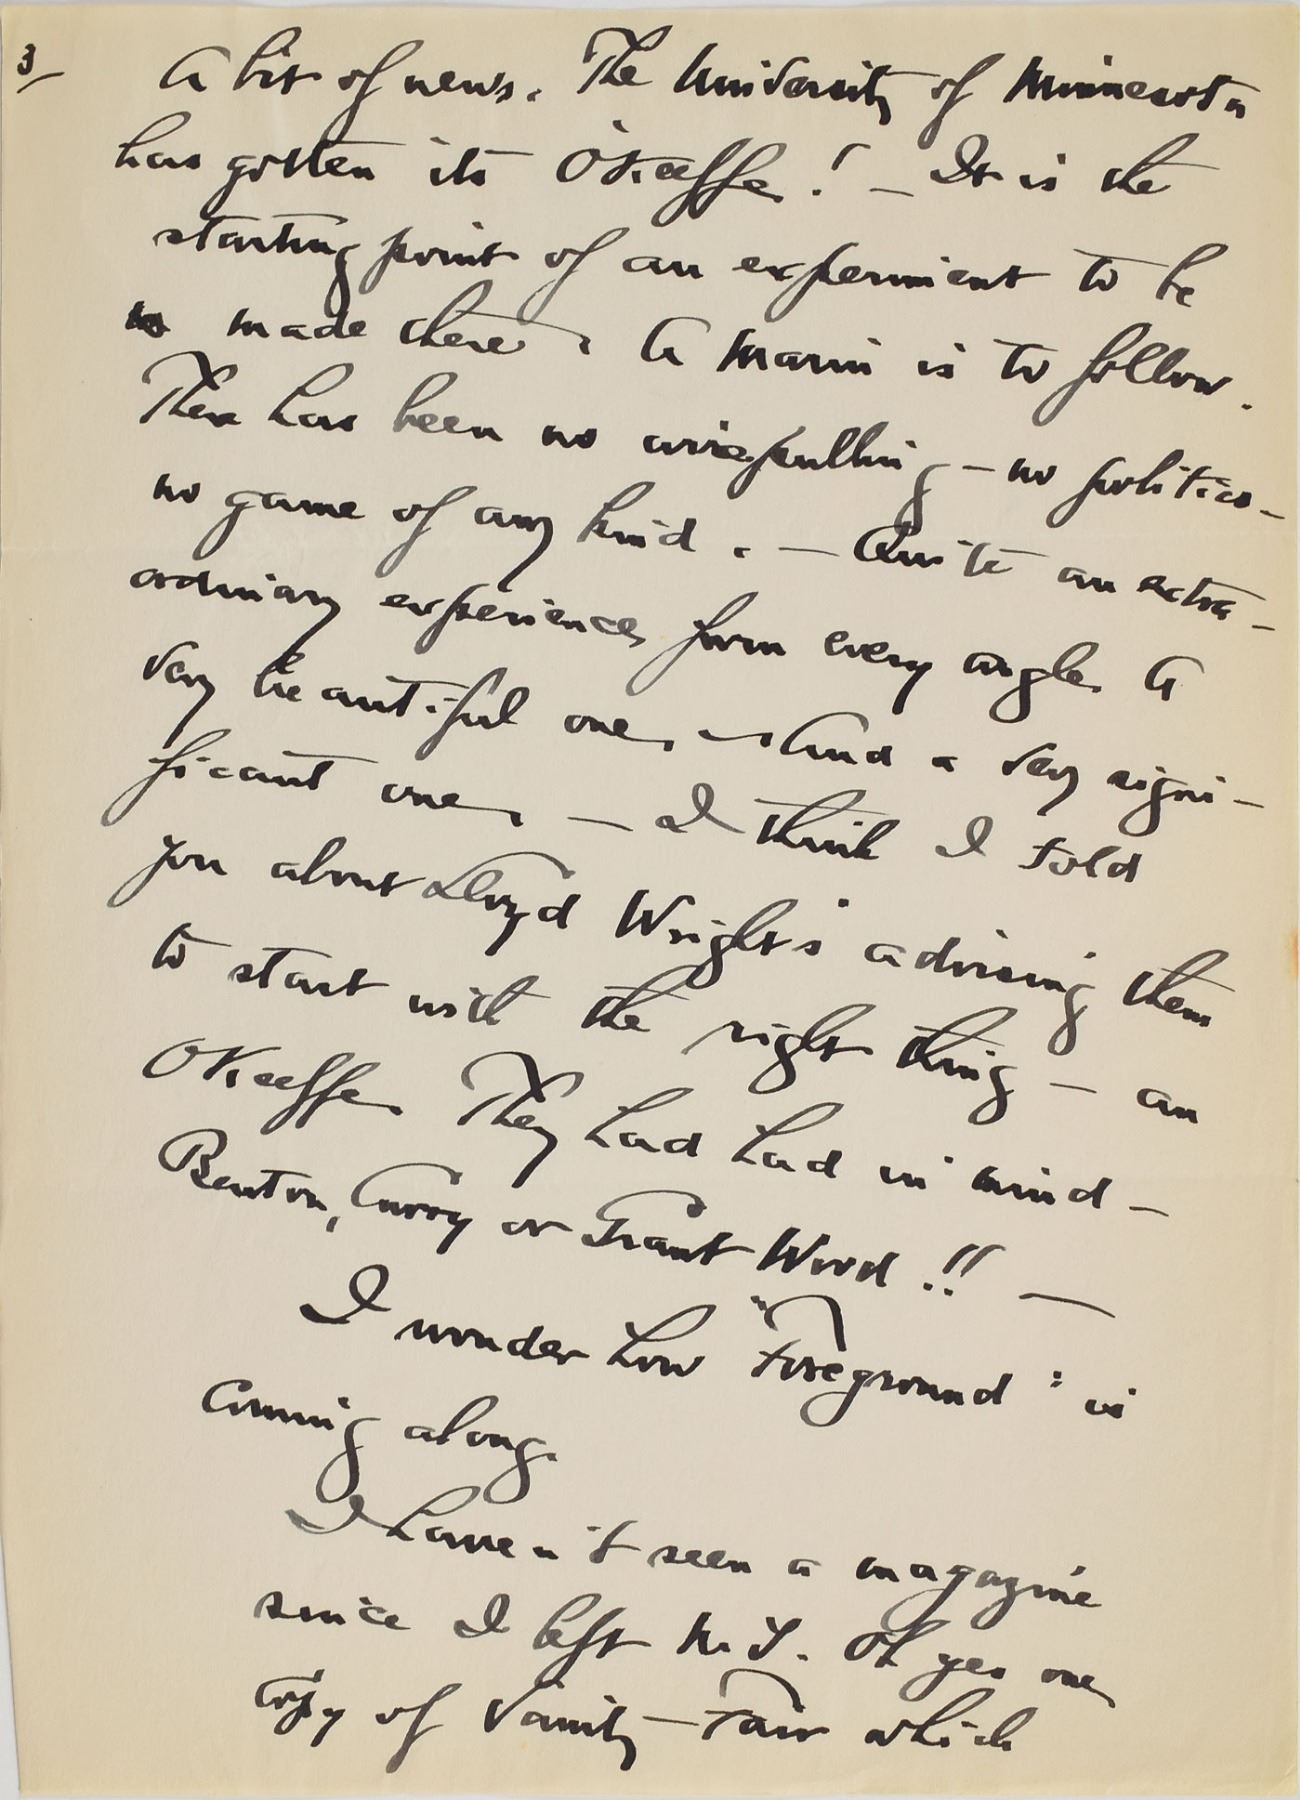 3/
A bit of news. The University of Minnesota
has gotten its O'Keeffe! — It is the
starting point of an experiment to be
made there. A Marin is to follow.
There has been no wirepulling — no politics —
no game of any kind. — Quite an extra-
ordinary experience from every angle. A
very beautiful one. — And a very signi-
ficant one. — I think I told
you about Lloyd Wright's advising them
to start with the right thing — an
O'Keeffe. They had had in mind —
Benton, Curry or Grant Wood!! —
I wonder how "Foreground" is
coming along.
I haven't seen a magazine
since I left N.Y. Oh yes one
copy of Vanity-Fair which